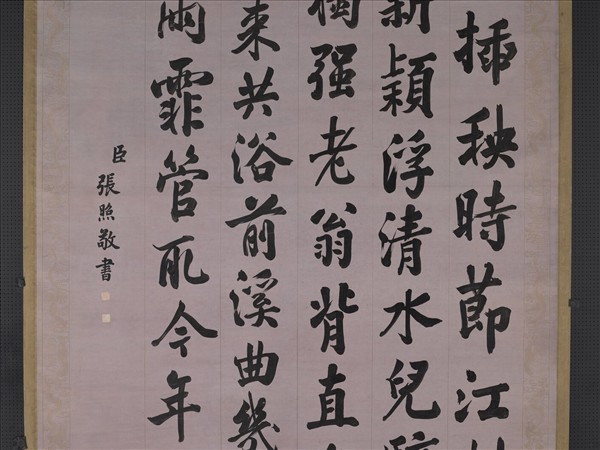 插秧時節江
新穎浮清水兒
强老翁背直
来共浴前溪曲幾
雨霏管取今年
臣張照敬書